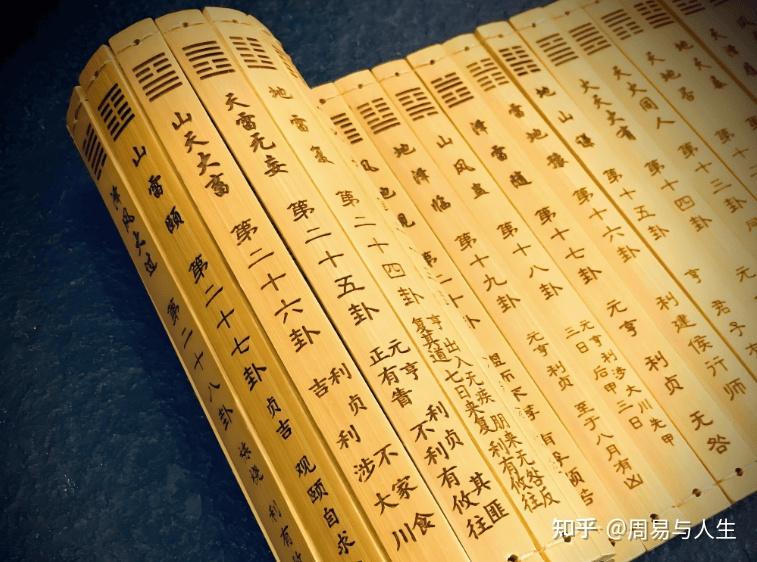 地天泰
天地否 第十二卦
天火同人 第十三卦
火天大有 第十四卦 元
地山谦 第十五卦 亨 君子有
雷地豫 第十六卦 利建侯行师
泽雷随 第十七卦 元亨利贞无咎
山风蛊 第十八卦 元亨利涉大川先甲
三日后甲三日
地泽临 第十九卦 元亨利贞 至于八月有凶
第二十卦
地雷复 第二十四卦 亨出入无疾朋来无咎反
复其道七日来复利有攸往
天雷无妄 第二十五卦 元亨利贞其匪
正有眚不利有攸往
山天大畜 第二十六卦 利贞不家食
吉利涉大川
山雷颐 第二十七卦 贞吉观颐自求
泽风大过 第二十八卦 利有攸
知乎 @周易与人生